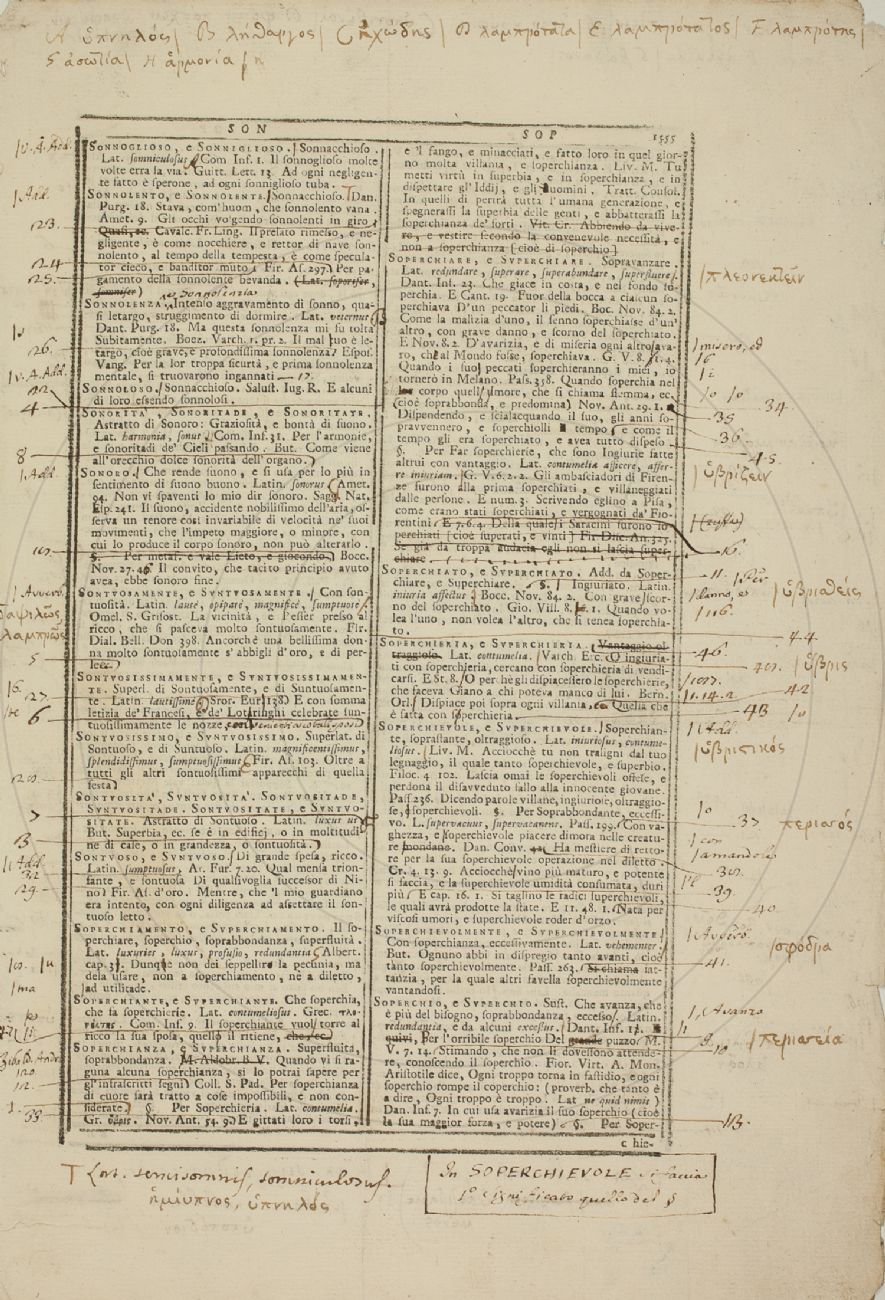 Α ὑπνηλός | Β λήθαργος | C ἠχώδης | D λαμπρότατα | E λαμπρότατος | F λαμπρότης |
G ἀσωτία | H ἁρμονία
SON
SONNOGLIOSO, e SONNIGLIOSO. Sonnacchioso.
Lat. somniculosus. Com Inf. 1. Il sonnoglioso molte
volte erra la via. Guitt. Lett. 13. Ad ogni negligen-
te fatto è sperone, ad ogni sonniglioso tuba.
SONNOLENTO, e SONNOLENTE. Sonnacchioso. Dan.
Purg. 18. Stava, com'huom, che sonnolento vana.
Amet. 9. Gli occhi volgendo sonnolenti in giro
Quasi, ec. Cavalc. Fr. Ling. Il prelato rimesso, e ne-
gligente, è come nocchiere, e rettor di nave son-
nolento, al tempo della tempesta, e come specula-
tor cieco, e banditor muto. Fir. As. 297. Per pa-
gamento della sonnolente bevanda. (Lat. soporifer,
SONNOLENZA. Intenso aggravamento di sonno, qua-
si letargo, struggimento di dormire. Lat. veternus
Dant. Purg. 18. Ma questa sonnolenza mi fu tolta
Subitamente. Boez. Varch. 1. pr. 2. Il mal suo è le-
targo, cioè grave, e profondissima sonnolenza. Espos.
Vang. Per la lor troppa sicurtà, e prima sonnolenza
mentale, si truovarono ingannati
SONNOLOSO. Sonnacchioso. Salust. Iug. R. E alcuni
di loro essendo sonnolosi.
SONORITA, SONORITADE, e SONORITATE.
Astratto di Sonoro: Graziosità, e bontà di suono.
Lat. harmonia, sonus. Com. Inf. 31. Per l'armonie,
e sonoritadi de' Cieli passando. But. Come viene
all'orecchio dolce sonorità dell'organo.
SONORO. Che rende suono, e si usa per lo più in
sentimento di suono buono. Latin. sonorus. Amet.
94. Non vi spaventi lo mio dir sonoro. Sagg. Nat.
Esp. 241. Il suono, accidente nobilissimo dell'aria, os-
serva un tenore così invariabile di velocità ne' suoi
movimenti, che l'impeto maggiore, o minore, con
cui lo produce il corpo sonoro, non può alterarlo.
§. Per metaf. e vale Lieto, e giocondo. Bocc.
Nov. 27. 46. Il convito, che tacito principio avuto
avea, ebbe sonoro fine.
SONTUOSAMENTE, e SVNTVOSAMENTE. Con son-
tuosità. Latin. laute, opipare, magnifice, sumptuose
Omel. S. Grisost. La vicinità, e l'esser presso al
ricco, che si pasceva molto sontuosamente. Fir.
Dial. Bell. Don 398. Ancorchè una bellissima don-
na molto sontuosamente s'abbigli d'oro, e di per-
le
SONTVOSISSIMAMENTE, e SVNTVOSISSIMAMEN-
TE. Superl. di Sontuosamente, e di Suntuosamen-
te. Latin. lautissime. Stor. Eur. 138. E con somma
letizia de' Francesi, e de' Lotaringhi celebrate sun-
tuosissimamente le nozze
SONTVOSISSIMO, e SVNTVOSISSIMO. Superlat. di
Sontuoso, e di Suntuoso. Latin. magnificentissimus,
splendidissimus, sumptuosissimus. Fir. As. 103. Oltre a
tutti gli altri sontuosissimi apparecchi di quella
festa
SONTVOSITÀ, SVNTVOSITÀ. SONTVOSITADE,
SVNTVOSITADE. SONTVOSITATE, e SVNTVO-
SITATE. Astratto di Sontuoso. Latin. luxus us
But. Superbia, ec. se è in edificj, o in moltitudi-
ne di case, o in grandezza, o sontuosità.
SONTVOSO, e SVNTVOSO. Di grande spesa, ricco.
Latin. sumptuosus. Ar. Fur. 7. 20. Qual mensa trion-
fante, e sontuosa Di qualsivoglia successor di Ni-
no. Fir. As. d'oro. Mentre, che 'l mio guardiano
era intento, con ogni diligenza ad assettare il son-
tuoso letto.
SOPERCHIAMENTO, e SVPERCHIAMENTO. Il so-
perchiare, soperchio, soprabbondanza, superfluità.
Lat. luxuries, luxus, profusio, redundantia. Albert.
cap. 3. Dunque non dei seppellire la pecunia, ma
dela usare, non a soperchiamento, nè a diletto,
ad utilitade.
SOPERCHIANTE, e SVPERCHIANTE. Che soperchia,
che fa soperchierie. Lat. contumeliosus. Grec. πλο-
Com. Inf. 9. Il soperchiante vuol torre al
ricco la sua sposa, quello il ritiene, che, ec.
SOPERCHIANZA, e SVPERCHIANZA. Superfluità,
soprabbondanza. M. Aldobr. B. V. Quando vi si ra-
guna alcuna soperchianza, si lo potrai sapere per
gl'infrascritti segni. Coll. S. Pad. Per soperchianza
di cuore sarà tratto a cose impossibili, e non con-
siderate. §. Per Soperchieria. Lat. contumelia.
Gr. ὕβρις. Nov. Ant. 54. 9. E gittati loro i torsi,
SOP 1555
e 'l fango, e minacciati, e fatto loro in quel gior-
no molta villania, e soperchianza. Liv. M. Tu
metti virtù in superbia, e in soperchianza, e in
dispettare gl'Iddij, e gli huomini. Tratt. Consol.
In quelli di perirà tutta l'umana generazione, e
spegnerassi la superbia delle genti, e abbatterassi la
soperchianza de' forti. Vit. Cr. Abbiendo da vive-
re, e vestire secondo la convenevole necessità, e
non a soperchianza [cioè di soperchio]
SOPERCHIARE, e SVPERCHIARE. Sopravanzare.
Lat. redundare, superare, superabundare, superfluere.
Dant. Inf. 23. Che giace in costa, e nel fondo so-
perchia. E Cant. 19. Fuor della bocca a ciascun so-
perchiava D'un peccator li piedi. Boc. Nov. 84. 2.
Come la malizia d'uno, il senno soperchiasse d'un'
altro, con grave danno, e scorno del soperchiato.
E Nov. 8. 2. D'avarizia, e di miseria ogni altro ava-
ro, che al Mondo fosse, soperchiava. G. V. 8. 1. 4.
Quando i suoi peccati soperchieranno i miei, io
tornerò in Melano. Pass. 358. Quando soperchia nel
corpo quell'umore, che si chiama flemma, ec.
(cioè soprabbonda, e predomina) Nov. Ant. 29. 1.
Dispendendo, e scialacquando il suo, gli anni so-
pravvennero, e soperchiolli tempo e come il
tempo gli era soperchiato, e avea tutto dispeso
§. Per Far soperchierie, che sono Ingiurie fatte
altrui con vantaggio. Lat. contumelia afficere, affer-
re iniuriam. G. V. 6. 2. 2. Gli ambasciadori di Firen-
ze furono alla prima soperchiati, e villaneggiati
dalle persone. E num. 3. Scrivendo eglino a Pisa,
come erano stati soperchiati, e vergognati da' Fio-
rentini. E 7. 6. 4. Della qualesi Saracini furono so-
perchiati [cioè superati, e vinti] Fir. Disc. An. 325.
Se già da troppa audacia egli non si lascia super-
chiare
SOPERCHIATO, e SVPERCHIATO. Add. da Soper-
chiare, e Superchiare. §. Ingiuriato. Latin.
iniuria affectus. Bocc. Nov. 84. 2. Con grave scor-
no del soperchiato. Gio. Vill. 8. 1. Quando vo-
lea l'uno, non volea l'altro, che si tenea soperchia-
to.
SOPERCHIERIA, e SVPERCHIERIA. Vantaggio ol-
traggioso. Lat. contumelia. Varch. Erc. O ingiuria-
ti con soperchieria, cercano con soperchieria di vendi-
carsi. E St. 8. O perchè gli dispiacessero le soperchierie,
che faceva Giano a chi poteva manco di lui. Bern.
Orl. Dispiace poi sopra ogni villania, ec. Quella che
è fatta con soperchieria.
SOPERCHIEVOLE, e SVPERCHIEVOLE. Soperchian-
te, soprastante, oltraggioso. Lat. iniuriosus, contume-
liosus. Liv. M. Acciocchè tu non traligni dal tuo
legnaggio, il quale tanto soperchievole, e superbio.
Filoc. 4. 102. Lascia omai le soperchievoli offese, e
perdona il disavveduto fallo alla innocente giovane.
Pass. 236. Dicendo parole villane, ingiuriose, oltraggio-
se, soperchievoli. §. Per Soprabbondante, eccessi-
vo. L. supervacuus, supervacaneus. Pass. 199. Con va-
ghezza, e soperchievole piacere dimora nelle creatu-
re mondane. Dan. Conv. 42. Ha mestiere di retto-
re per la sua soperchievole operazione nel diletto
Cr. 4. 13. 9. Acciocchè vino più maturo, e potente
si faccia, e la superchievole umidità consumata, duri
più. E cap. 16. 1. Si taglino le radici superchievoli,
le quali avrà prodotte la state. E 11. 48. 1. Nata per
viscosi umori, e superchievole roder d'orzo.
SOPERCHIEVOLMENTE, e SVPERCHIEVOLMENTE
Con soperchianza, eccessivamente. Lat. vehementer.
But. Ognuno abbi in dispregio tanto avanti, cioè
tanto soperchievolmente. Pass. 263. Si chiama iat-
tanzia, per la quale altri favella soperchievolmente
vantandosi.
SOPERCHIO, e SVPERCHIO. Sust. Che avanza, che
è più del bisogno, soprabbondanza, eccesso. Latin.
redundantia, e da alcuni excessus. Dant. Inf. 11.
quivi, Per l'orribile soperchio Del grande puzzo. M.
V. 7. 14. Stimando, che non si dovessono attende-
re, conoscendo il soperchio. Fior. Virt. A. Mon.
Aristotile dice, Ogni troppo torna in fastidio, e ogni
soperchio rompe il coperchio: (proverb. che tanto è
a dire, Ogni troppo è troppo. Lat ne quid nimis)
Dan. Inf. 7. In cui usa avarizia il suo soperchio (cioè
la sua maggior forza, e potere) §. Per Soper-
chie-
πλεονεκτεῖν
ὑβρίζειν
ὑβρισθείς
ὕβρις
ὑβριστικός
περισσός
σφόδρα
περισσεία
T Lat. semisomnis, somniculosus.
ἡμίυπνος, ὑπνηλός
In SOPERCHIEVOLE si faccia
1° significato quello del §